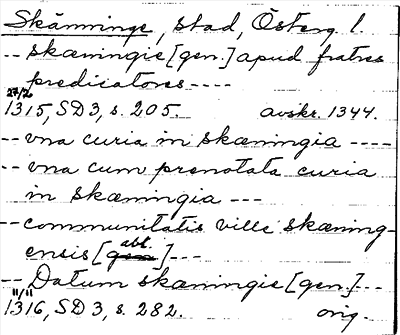 Skänninge, stad, Österg. l.
-- skæningie [gen.] apud fratres
predicatores ----
27/2
1315, SD 3, s. 205. avskr. 1344.
-- vna curia in skæningia ----
-- vna cum prenotata curia
in skæningia ---
-- communitatis ville skæning-
abl.
ensis [gen] ---
-- Datum skæningie [gen.] ---
11/11
1316, SD 3, s. 282. orig.